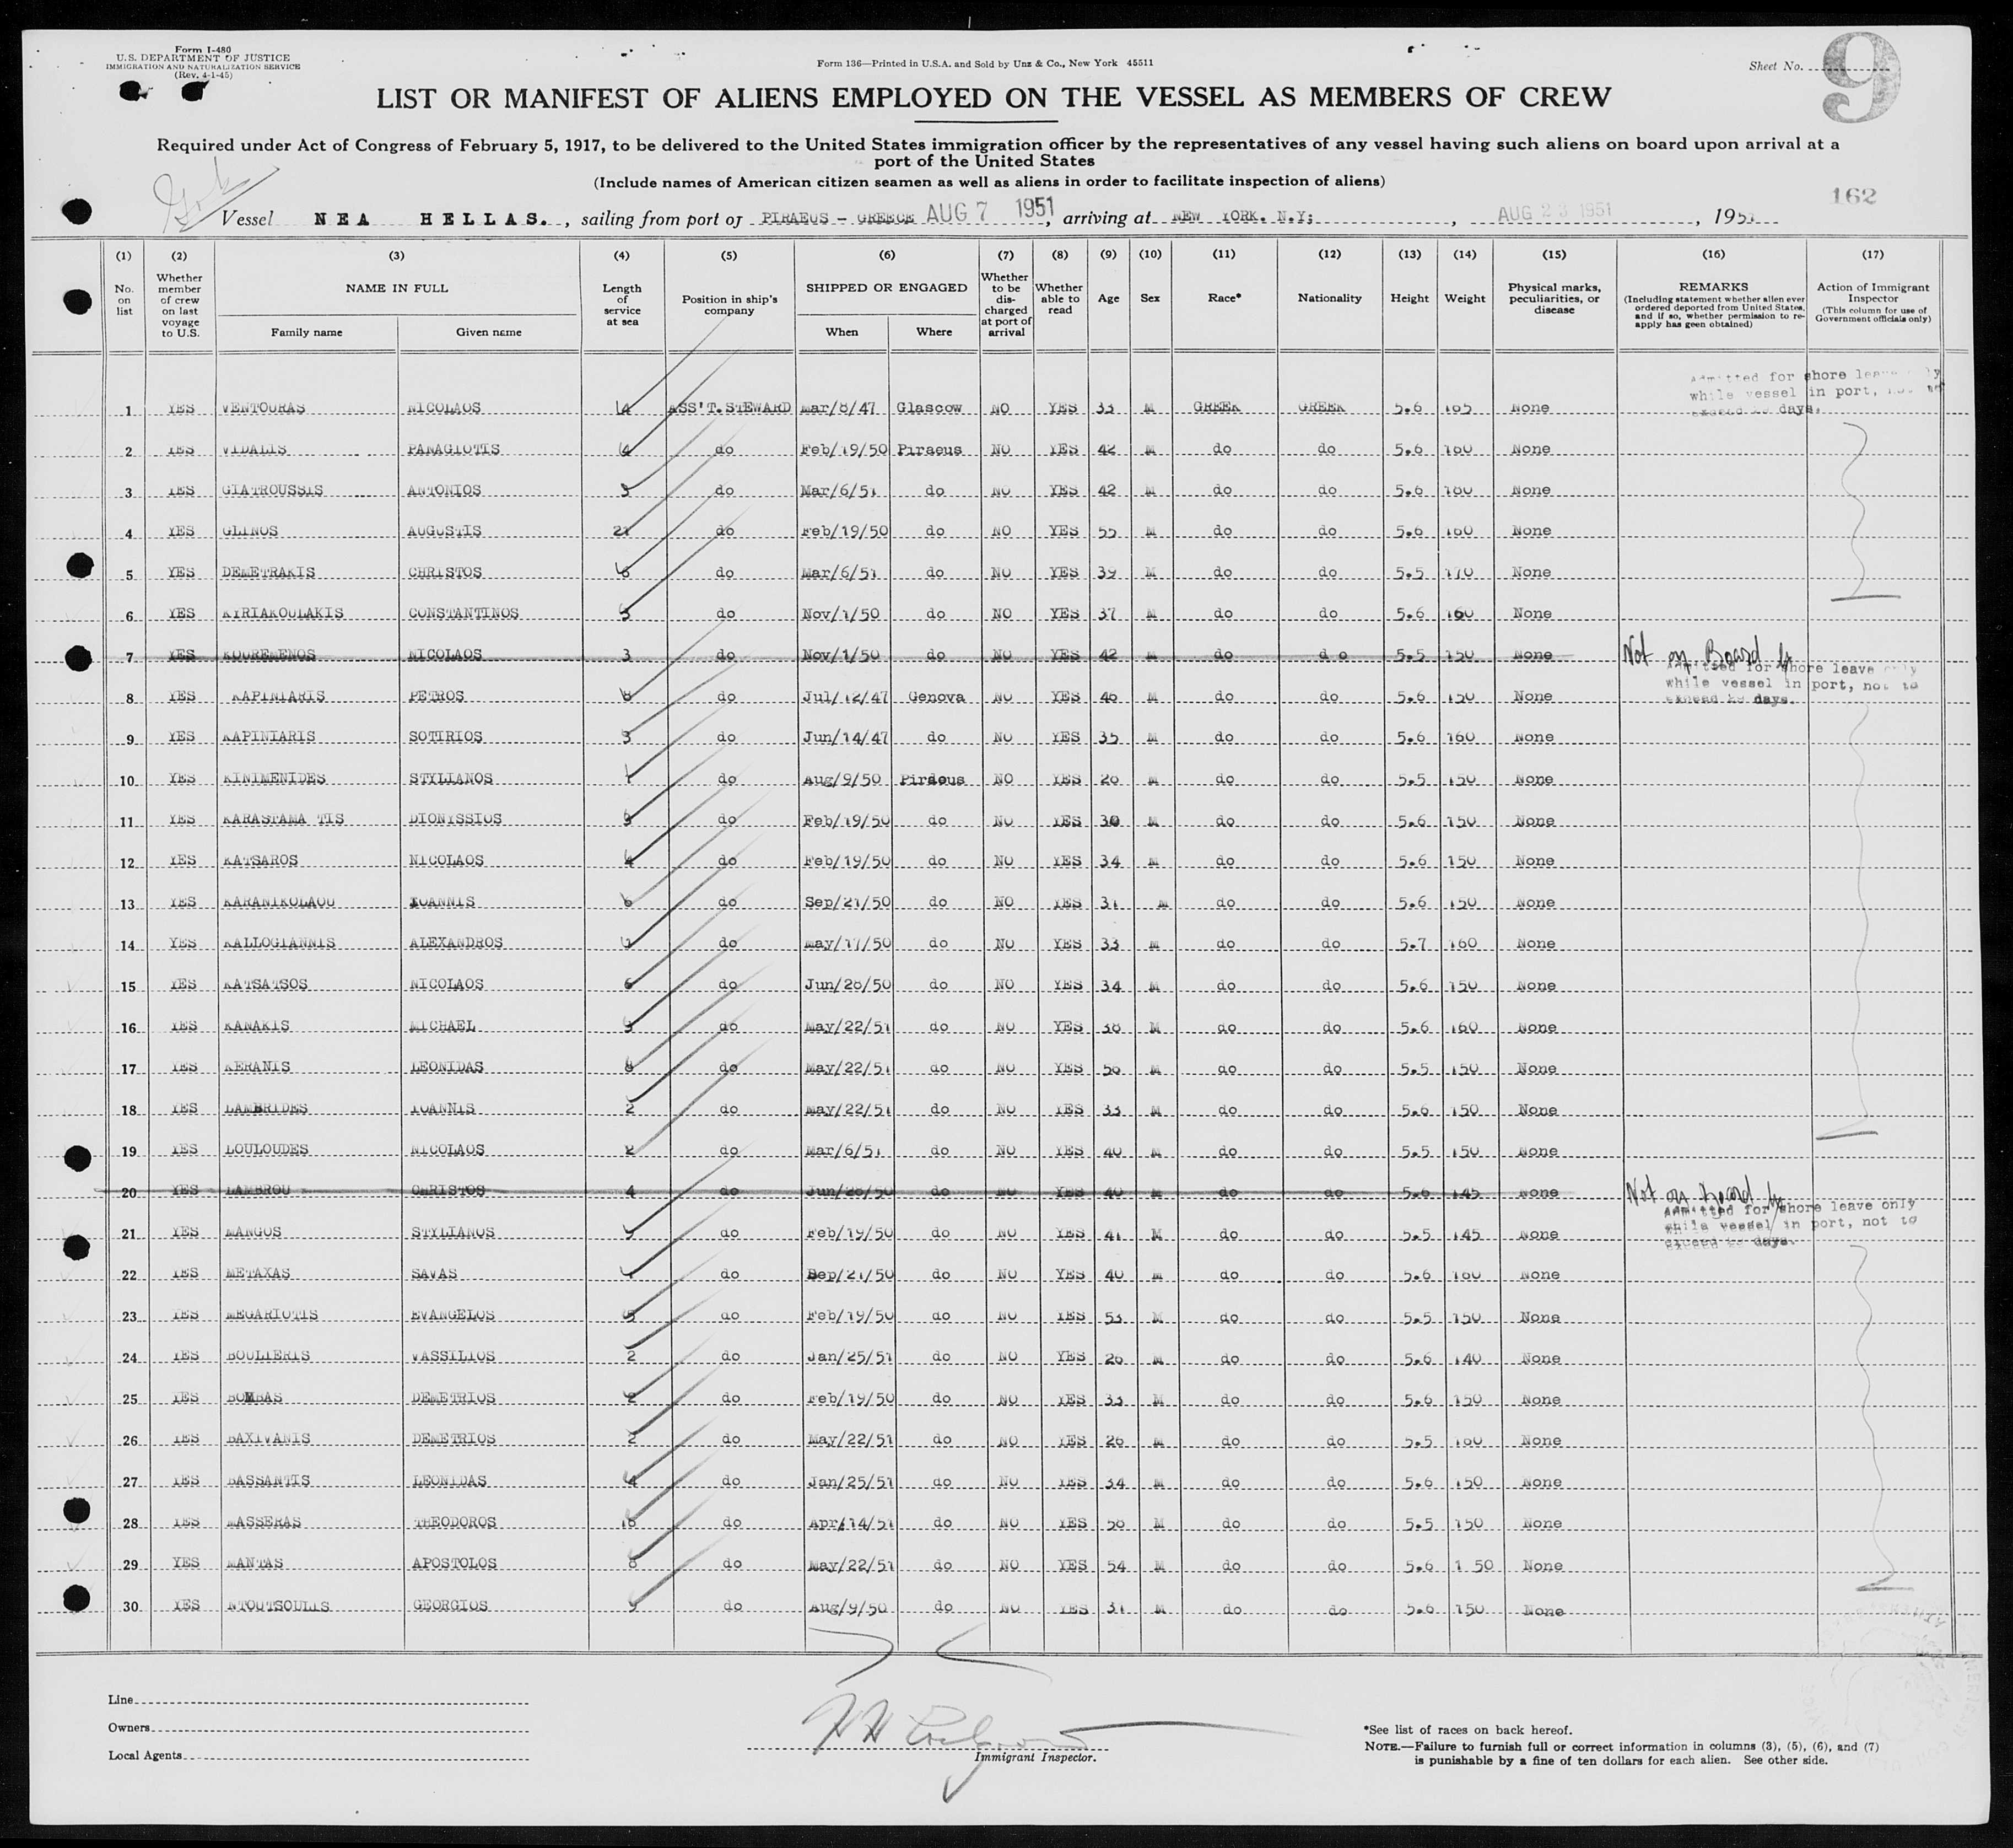 Form I-480
U.S. DEPARTMENT OF JUSTICE
IMMIGRATION AND NATURALIZATION SERVICE
(Rev. 4-1-45)
Form 136—Printed in U.S.A. and Sold by Unz & Co., New York 45511
Sheet No. 9
LIST OR MANIFEST OF ALIENS EMPLOYED ON THE VESSEL AS MEMBERS OF CREW
Required under Act of Congress of February 5, 1917, to be delivered to the United States immigration officer by the representatives of any vessel having such aliens on board upon arrival at a
port of the United States
(Include names of American citizen seamen as well as aliens in order to facilitate inspection of aliens)
162
Vessel NEA HELLAS., sailing from port of PIRAEUS - GREECE AUG 7 1951, arriving at NEW YORK. N.Y; , AUG 23 1951, 1951
(1) (2) (3) (4) (5) (6) (7) (8) (9) (10) (11) (12) (13) (14) (15) (16) (17)
No. on list
Whether member of crew on last voyage to U.S.
NAME IN FULL
Family name Given name
Length of service at sea
Position in ship's company
SHIPPED OR ENGAGED
When Where
Whether to be discharged at port of arrival
Whether able to read
Age Sex Race* Nationality Height Weight
Physical marks, peculiarities, or disease
REMARKS
(Including statement whether alien ever ordered deported from United States, and if so, whether permission to re-apply has geen obtained)
Action of Immigrant Inspector
(This column for use of Government officials only)
Admitted for shore leave only
while vessel in port, not to
exceed 29 days.
1 YES VENTOURAS NICOLAOS 14 ASS'T.STEWARD Mar/8/47 Glascow NO YES 33 M GREEK GREEK 5.6 165 None
2 YES VIDALIS PANAGIOTIS 4 do Feb/19/50 Piraeus NO YES 42 M do do 5.6 160 None
3 YES GIATROUSSIS ANTONIOS 3 do Mar/6/51 do NO YES 42 M do do 5.6 180 None
4 YES GLINOS AUGUSTIS 21 do Feb/19/50 do NO YES 55 M do do 5.6 160 None
5 YES DEMETRAKIS CHRISTOS 6 do Mar/6/51 do NO YES 39 M do do 5.5 170 None
6 YES KYRIAKOULAKIS CONSTANTINOS 3 do Nov/1/50 do NO YES 37 M do do 5.6 160 None
7 YES KOUREMENOS NICOLAOS 3 do Nov/1/50 do NO YES 42 M do do 5.5 150 None Not on Board
Admitted for shore leave only
while vessel in port, not to
exceed 29 days.
8 YES KAPINIARIS PETROS 8 do Jul/12/47 Genova NO YES 46 M do do 5.6 150 None
9 YES KAPINIARIS SOTIRIOS 3 do Jun/14/47 do NO YES 35 M do do 5.6 160 None
10 YES KINIMENIDES STYLIANOS 1 do Aug/9/50 Piraeus NO YES 26 M do do 5.5 150 None
11 YES KARASTAMA TIS DIONYSSIOS 3 do Feb/19/50 do NO YES 30 M do do 5.6 150 None
12 YES KATSAROS NICOLAOS 4 do Feb/19/50 do NO YES 34 M do do 5.6 150 None
13 YES KARANIKOLAOU IOANNIS 6 do Sep/21/50 do NO YES 31 M do do 5.6 150 None
14 YES KALLOGIANNIS ALEXANDROS 1 do May/17/50 do NO YES 33 M do do 5.7 160 None
15 YES KATSATSOS NICOLAOS 6 do Jun/28/50 do NO YES 34 M do do 5.6 150 None
16 YES KANAKIS MICHAEL 3 do May/22/51 do NO YES 38 M do do 5.6 160 None
17 YES KERANIS LEONIDAS 8 do May/22/51 do NO YES 56 M do do 5.5 150 None
18 YES LAMBRIDES IOANNIS 2 do May/22/51 do NO YES 33 M do do 5.6 150 None
19 YES LOULOUDES NICOLAOS 2 do Mar/6/51 do NO YES 40 M do do 5.5 150 None
20 YES LAMBROU CHRISTOS 4 do Jun/28/50 do NO YES 40 M do do 5.6 145 None Not on board
Admitted for shore leave only
while vessel in port, not to
exceed 29 days.
21 YES MANGOS STYLIANOS do Feb/19/50 do NO YES 41 M do do 5.5 145 None
22 YES METAXAS SAVAS do Sep/21/50 do NO YES 40 M do do 5.6 160 None
23 YES MEGARIOTIS EVANGELOS 5 do Feb/19/50 do NO YES 53 M do do 5.5 150 None
24 YES BOULIERIS VASSILIOS 2 do Jan/25/51 do NO YES 26 M do do 5.6 140 None
25 YES BOMBAS DEMETRIOS 2 do Feb/19/50 do NO YES 33 M do do 5.6 150 None
26 YES BAXIVANIS DEMETRIOS 2 do May/22/51 do NO YES 26 M do do 5.5 160 None
27 YES BASSANTIS LEONIDAS 4 do Jan/25/51 do NO YES 34 M do do 5.6 150 None
28 YES MASSERAS THEODOROS 18 do Apr/14/51 do NO YES 50 M do do 5.5 150 None
29 YES MANTAS APOSTOLOS 8 do May/22/51 do NO YES 54 M do do 5.6 1 50 None
30 YES NTOUTSOULIS GEORGIOS 9 do Aug/9/50 do NO YES 31 M do do 5.6 150 None
Line
Owners
Local Agents
Immigrant Inspector.
*See list of races on back hereof.
NOTE.—Failure to furnish full or correct information in columns (3), (5), (6), and (7)
is punishable by a fine of ten dollars for each alien. See other side.